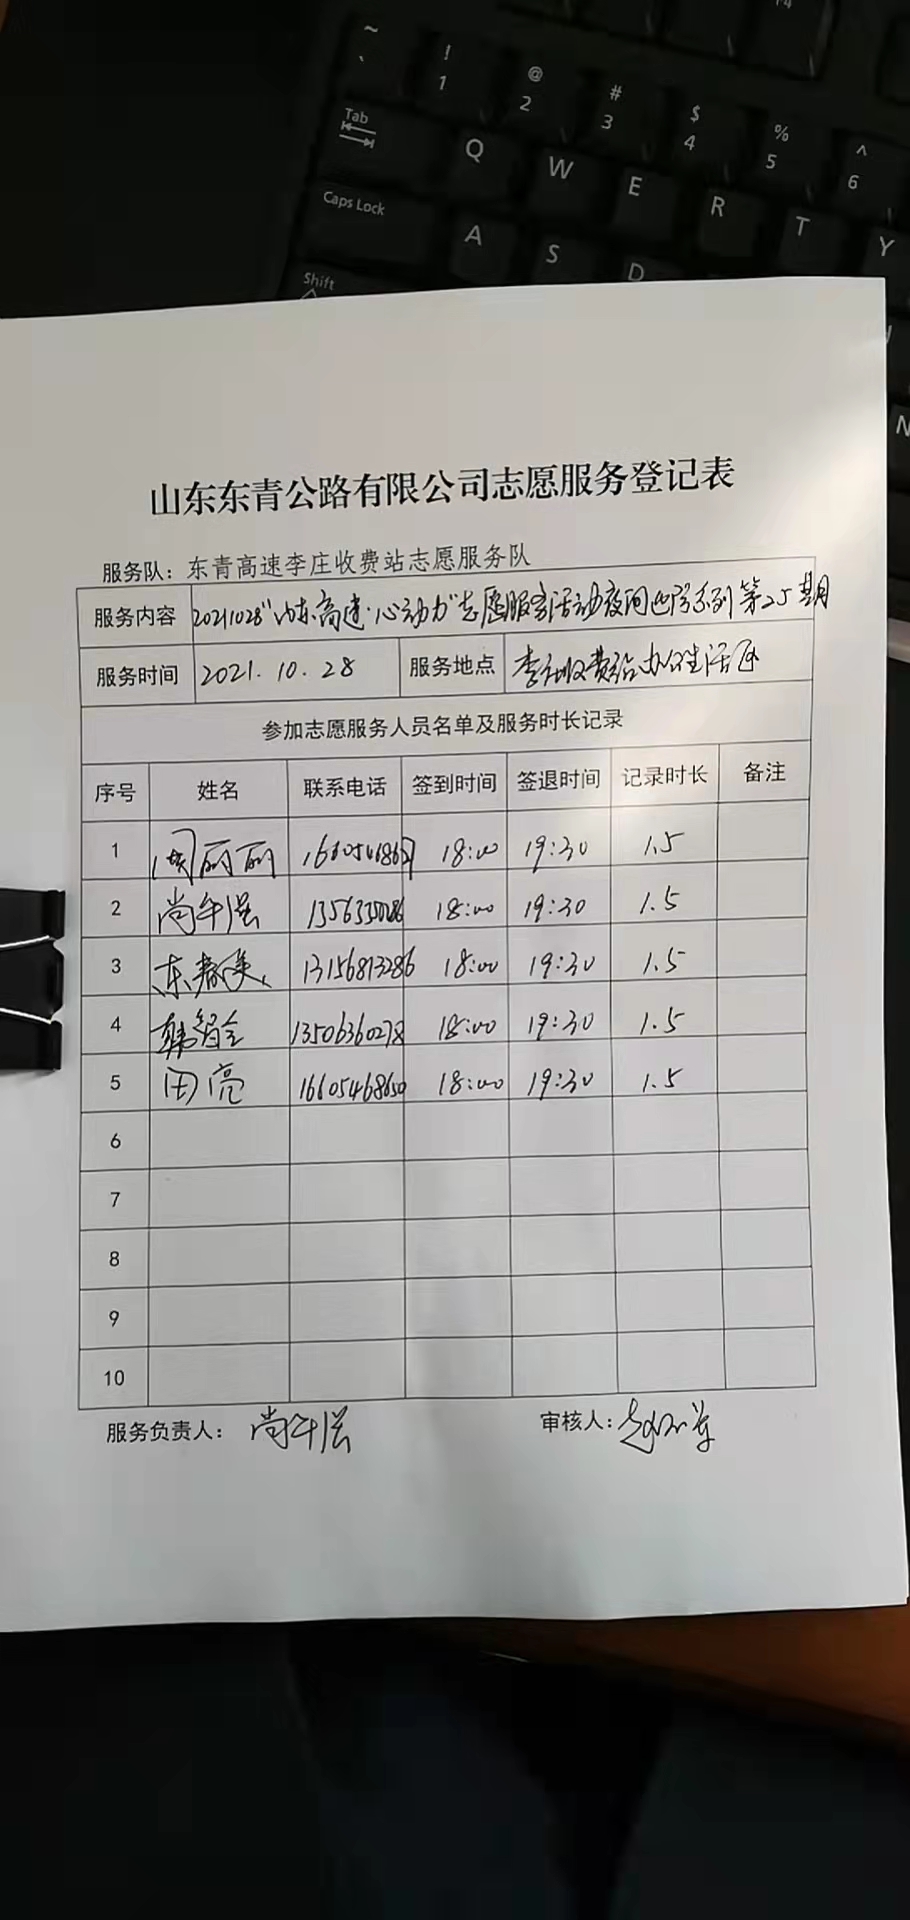 ~
`
!
1
@
2
#
3
$
4
%
5
^
6
Tab
Q W E R T Y
Caps Lock
A S D
Shift
N
山东东青公路有限公司志愿服务登记表
服务队：东青高速李庄收费站志愿服务队
服务内容 20211028“山东高速·心动力”志愿服务活动夜间巡逻系列第25期
服务时间 2021.10.28 服务地点 李庄收费站办公生活区
参加志愿服务人员名单及服务时长记录
序号 姓名 联系电话 签到时间 签退时间 记录时长 备注
1 周丽丽 18:00 19:30 1.5
2 尚年强 18:00 19:30 1.5
3 13156813286 18:00 19:30 1.5
4 韩智全 13506360278 18:00 19:30 1.5
5 田亮 16605468650 18:00 19:30 1.5
6
7
8
9
10
服务负责人：尚年强 审核人：